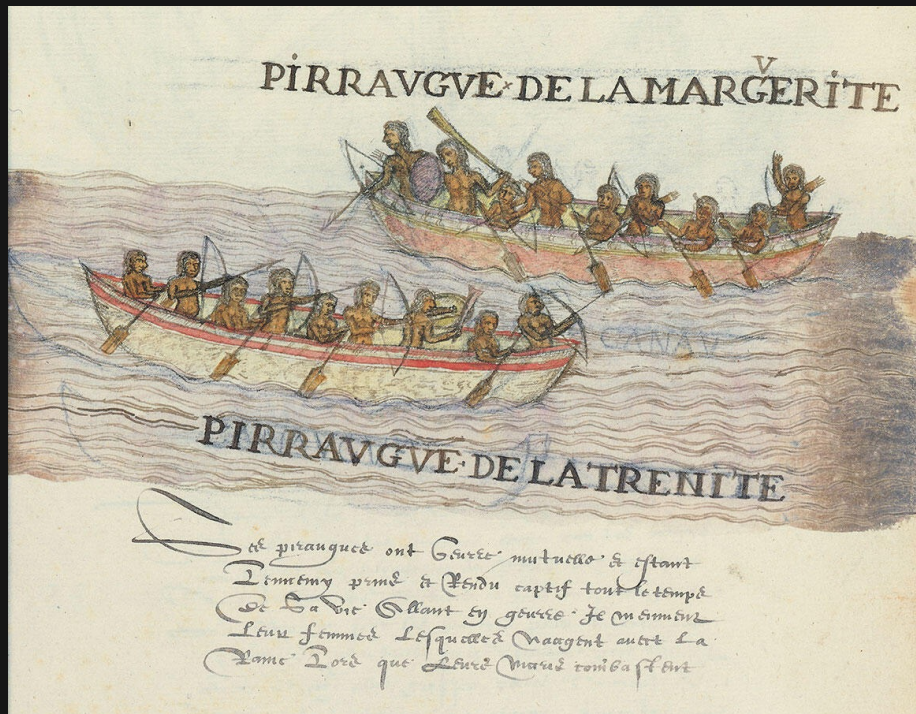 PIRRAVGVE DE LA MARGVERITE
CANAV
PIRRAVGVE DE LA TRENITE
Ces piraugues ont Guerre mutuelle et estant
Lennemy prins et Rendu captif tout le temps
De Sa vie Allant en guerre Ilz mennent
Leur femmes Lesquelles Naagent avect La
Rame Lors que Leurs Maris combastent